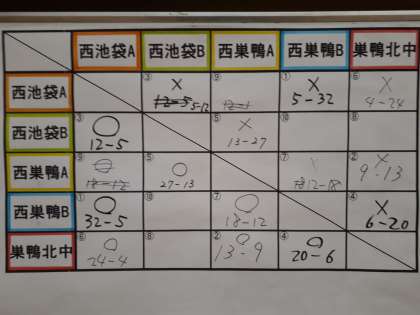 西池袋A 西池袋B 西巣鴨A 西巣鴨B 巣鴨北中
西池袋A ③ × 12-5 5-12 ⑨ 12-1 ① × 5-32 ⑥ × 4-24
西池袋B ③ ○ 12-5 ⑤ × 13-27 ⑩ ⑧
西巣鴨A ⑨ ○ ⑤ ○ 27-13 ⑦ 12-18 ② × 9-13
西巣鴨B ① ○ 32-5 ⑩ ⑦ ○ 18-12 ④ × 6-20
巣鴨北中 ⑥ ○ 24-4 ⑧ ② ○ 13-9 ④ ○ 20-6